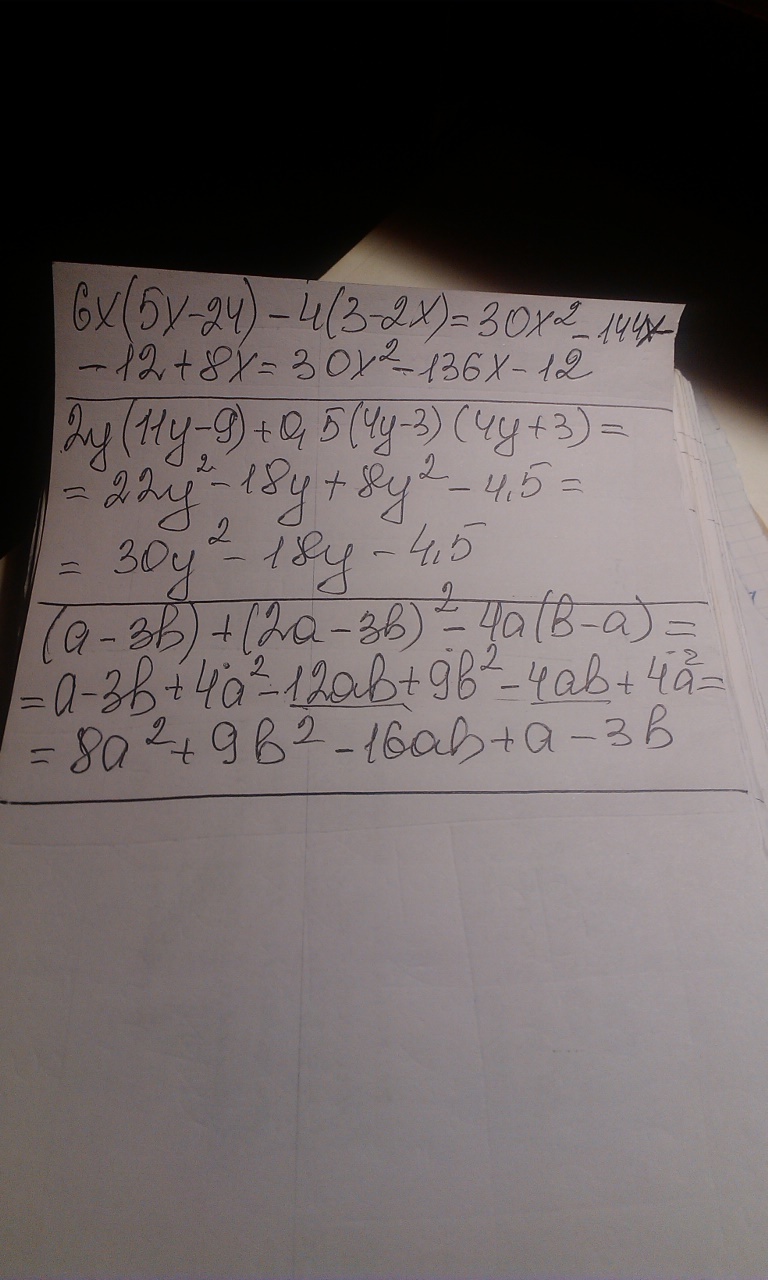 6x(5x-24)-4(3-2x)=30x²-144x-
-12+8x=30x²-136x-12
2y(11y-9)+0,5(4y-3)(4y+3)=
=22y²-18y+8y²-4,5=
=30y²-18y-4,5
(a-3b)+(2a-3b)²-4a(b-a)=
=a-3b+4a²-12ab+9b²-4ab+4a²=
=8a²+9b²-16ab+a-3b